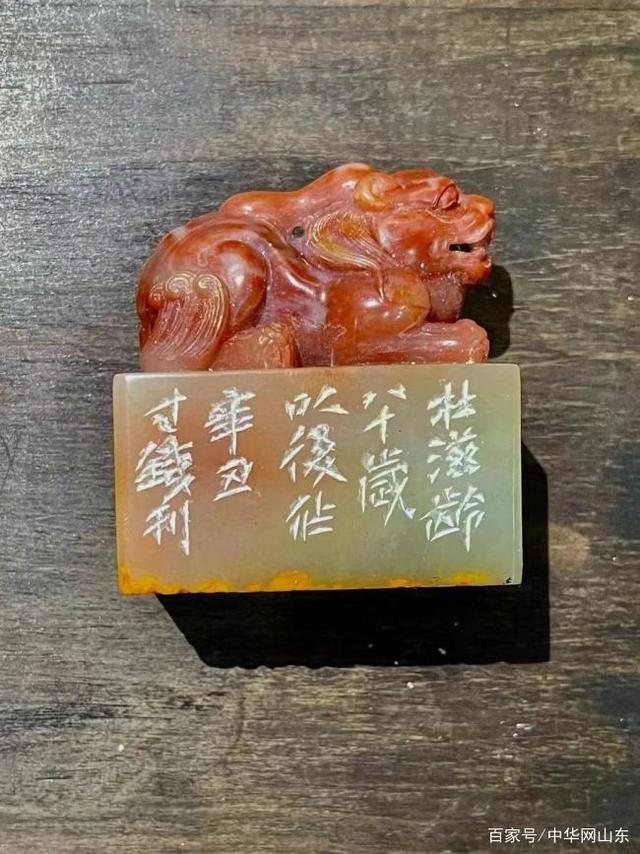 杜滋齡
八十歲
以後作
辛丑
寸鐵利
百家号/中华网山东